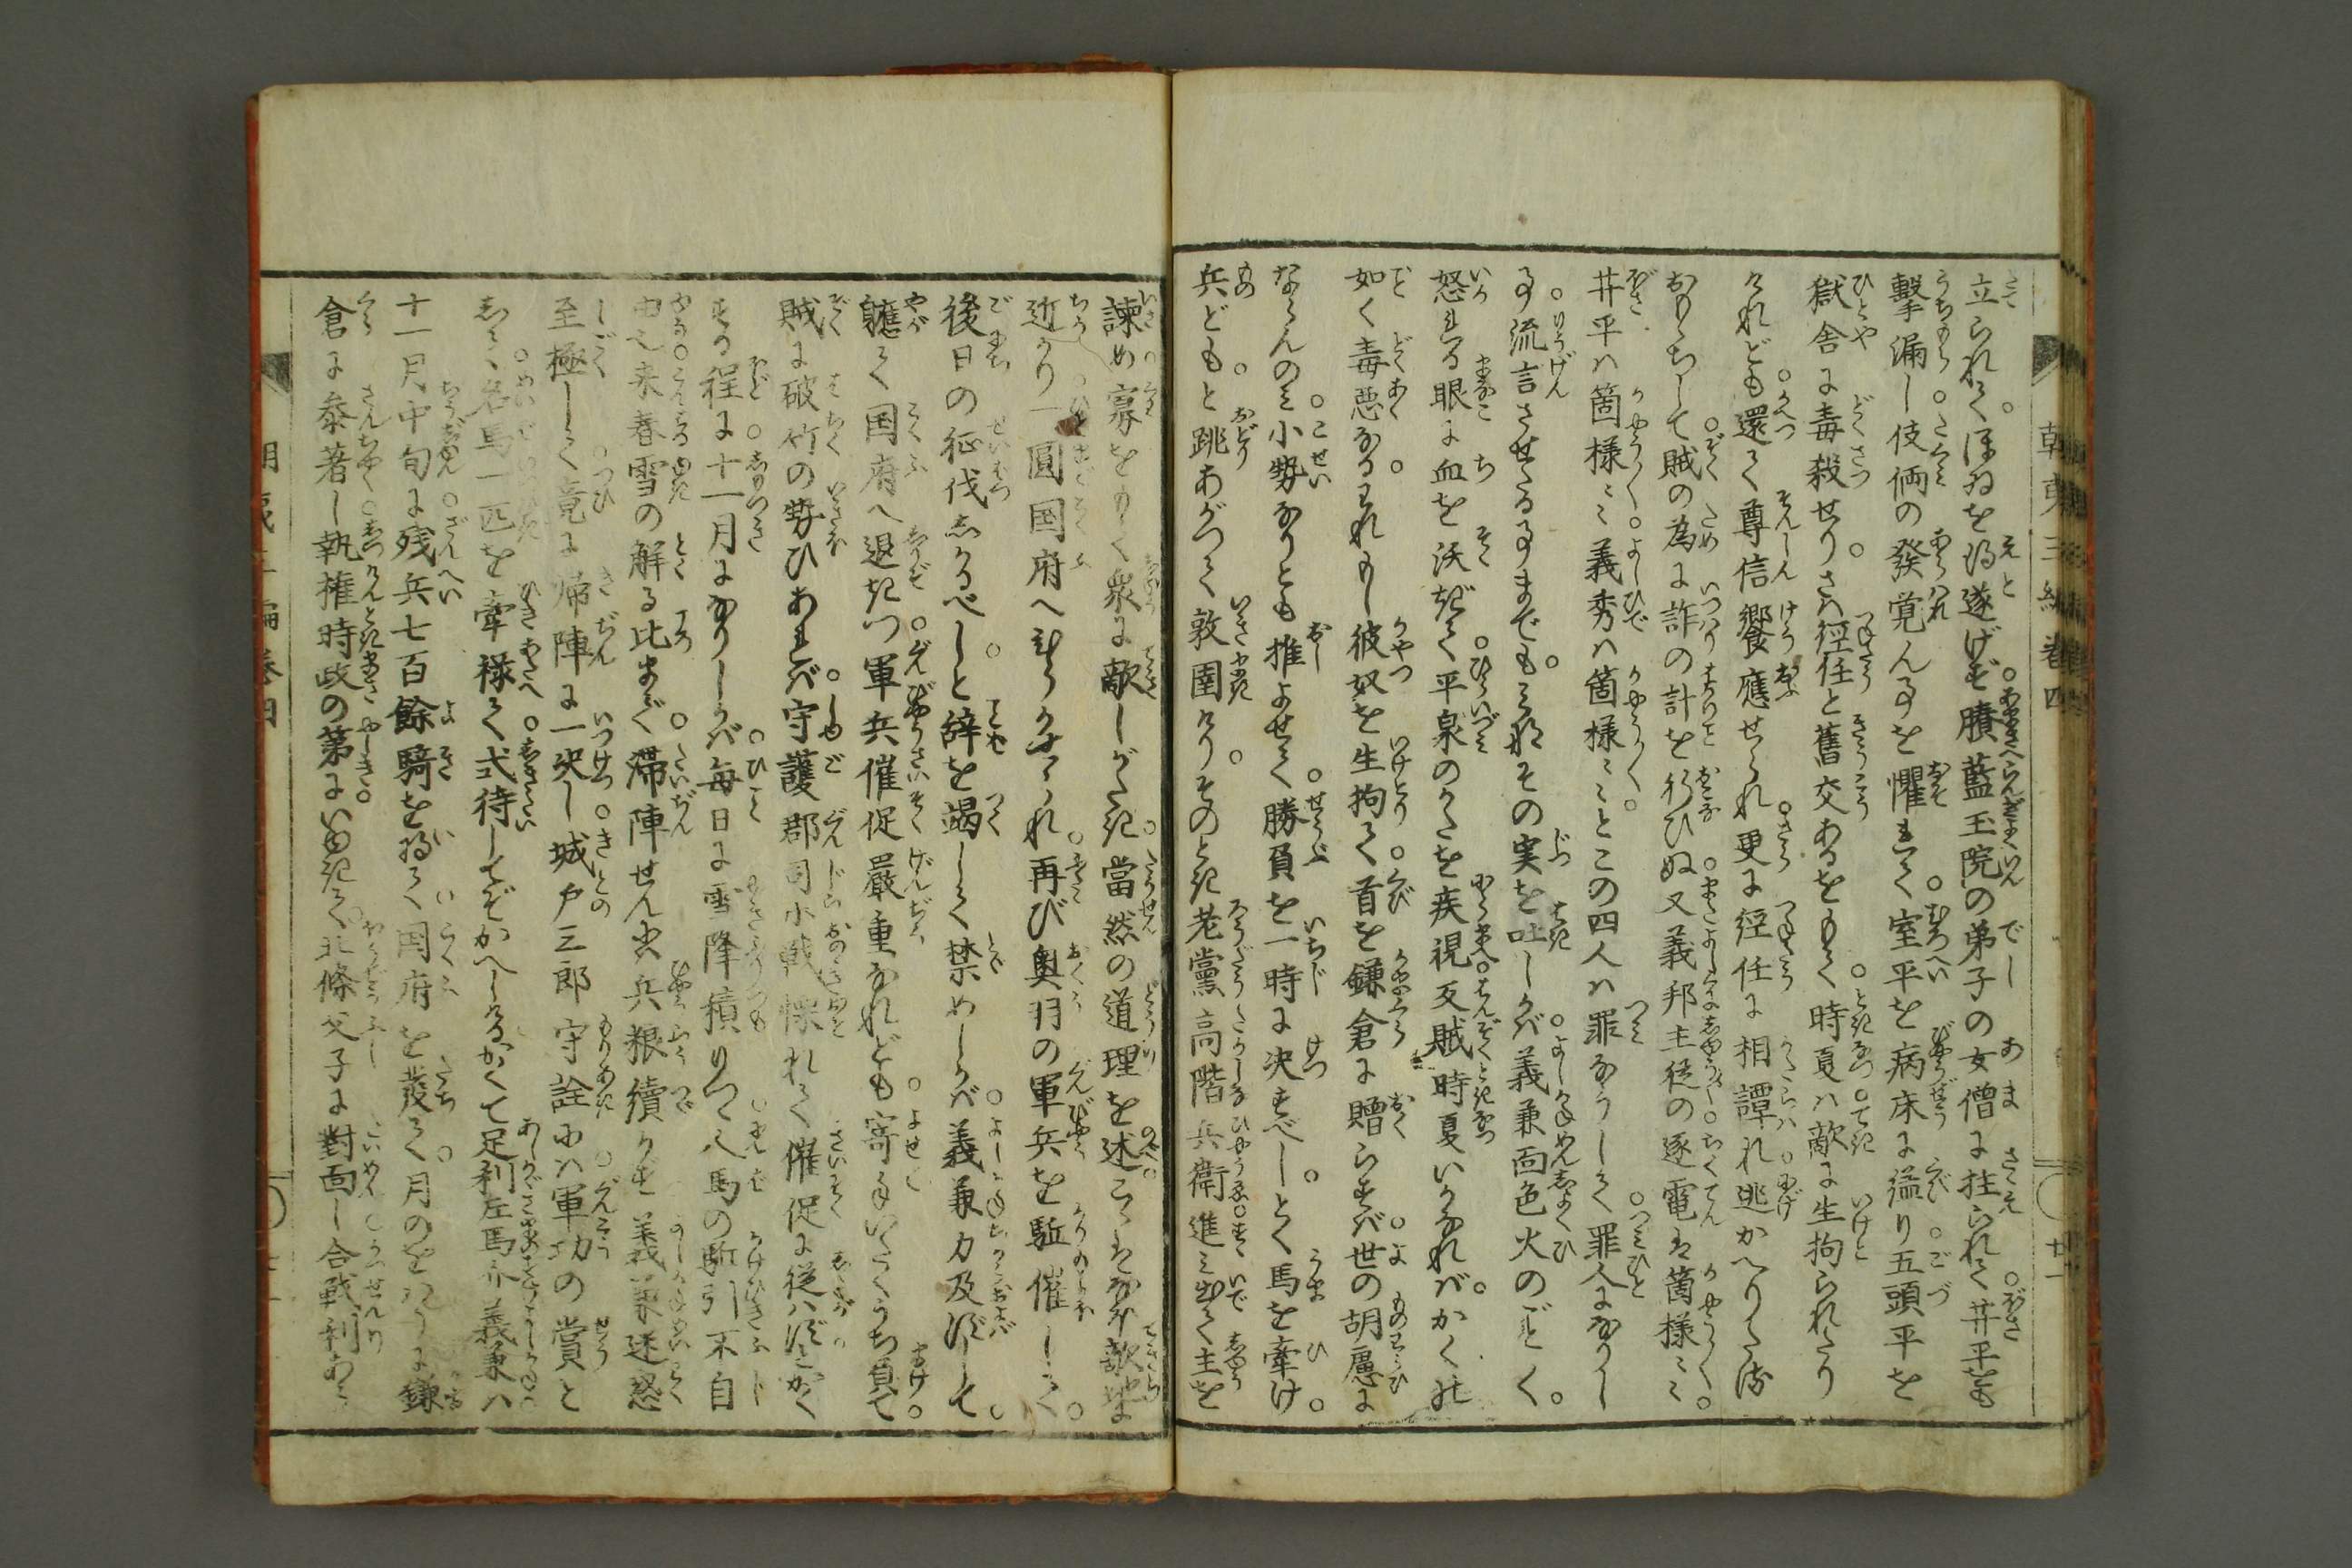 朝夷三編巻四
立られてほゐを得遂げず贐藍玉院の弟子の女僧に拄られて井平をも
撃漏し伎倆の發覚ん事を懼れて室平を病床に縊り五頭平を
獄舎に毒殺せりさハ徑任と舊交あるをもて時夏ハ敵に生拘られたり
けれども還て尊信饗應せられ更に経任に相譚れ逃かへりし
おもゝちして賊の為に詐の計を行ひぬ又義邦主従の逐電ハ箇様ミミ
井平ハ箇様ミミ義秀ハ箇様ミミとこの四人ハ罪なうして罪人になりし
事流言させたる事までもミなその実を吐しかバ義兼面色火のごとく
怒れる眼に血を沃ぎて平泉のかたを疾視反賊時夏いかなれバかくの
如く毒悪なるわれもし彼奴を生拘て首を鎌倉に贈らずバ世の胡慮に
ならんのミ小勢なりとも推よせて勝負を一時に决すべしとく馬を牽け
兵どもと跳あがつて敦圉けりそのとき老黨高階兵衛進ミ出て主を
十一
諫め寡をもて衆に敵しがたき當然の道理を述こゝハなほ敵地に
近かり一圓国府へひらかせられ再び奥羽の軍兵を駈催して
後日の征伐しかるべしと辞を竭して禁めしかバ義兼力及ずして
軈て国府へ退きつ軍兵催促嚴重なれども寄手いたくうち負て
賊に破竹の勢ひあれバ守護郡司小戦懌れて催促に従ハずとかく
する程に十一月になりしかバ毎日に雪降積りつゝ人馬の駈引不自
由也来春雪の解る比まで滞陣せんハ兵粮續かず義兼迷惑
至極して竟に帰陣に一决し城戸三郎守詮にハ軍功の賞と
して名馬一匹を牽禄て式待してぞかへしけるかくて足利左馬介義兼ハ
十一月中旬に残兵七百餘騎を将て国府を發て月のをはりに鎌
倉に参著し執権時政の第にいゆきて北條父子に對面し合戦利あら